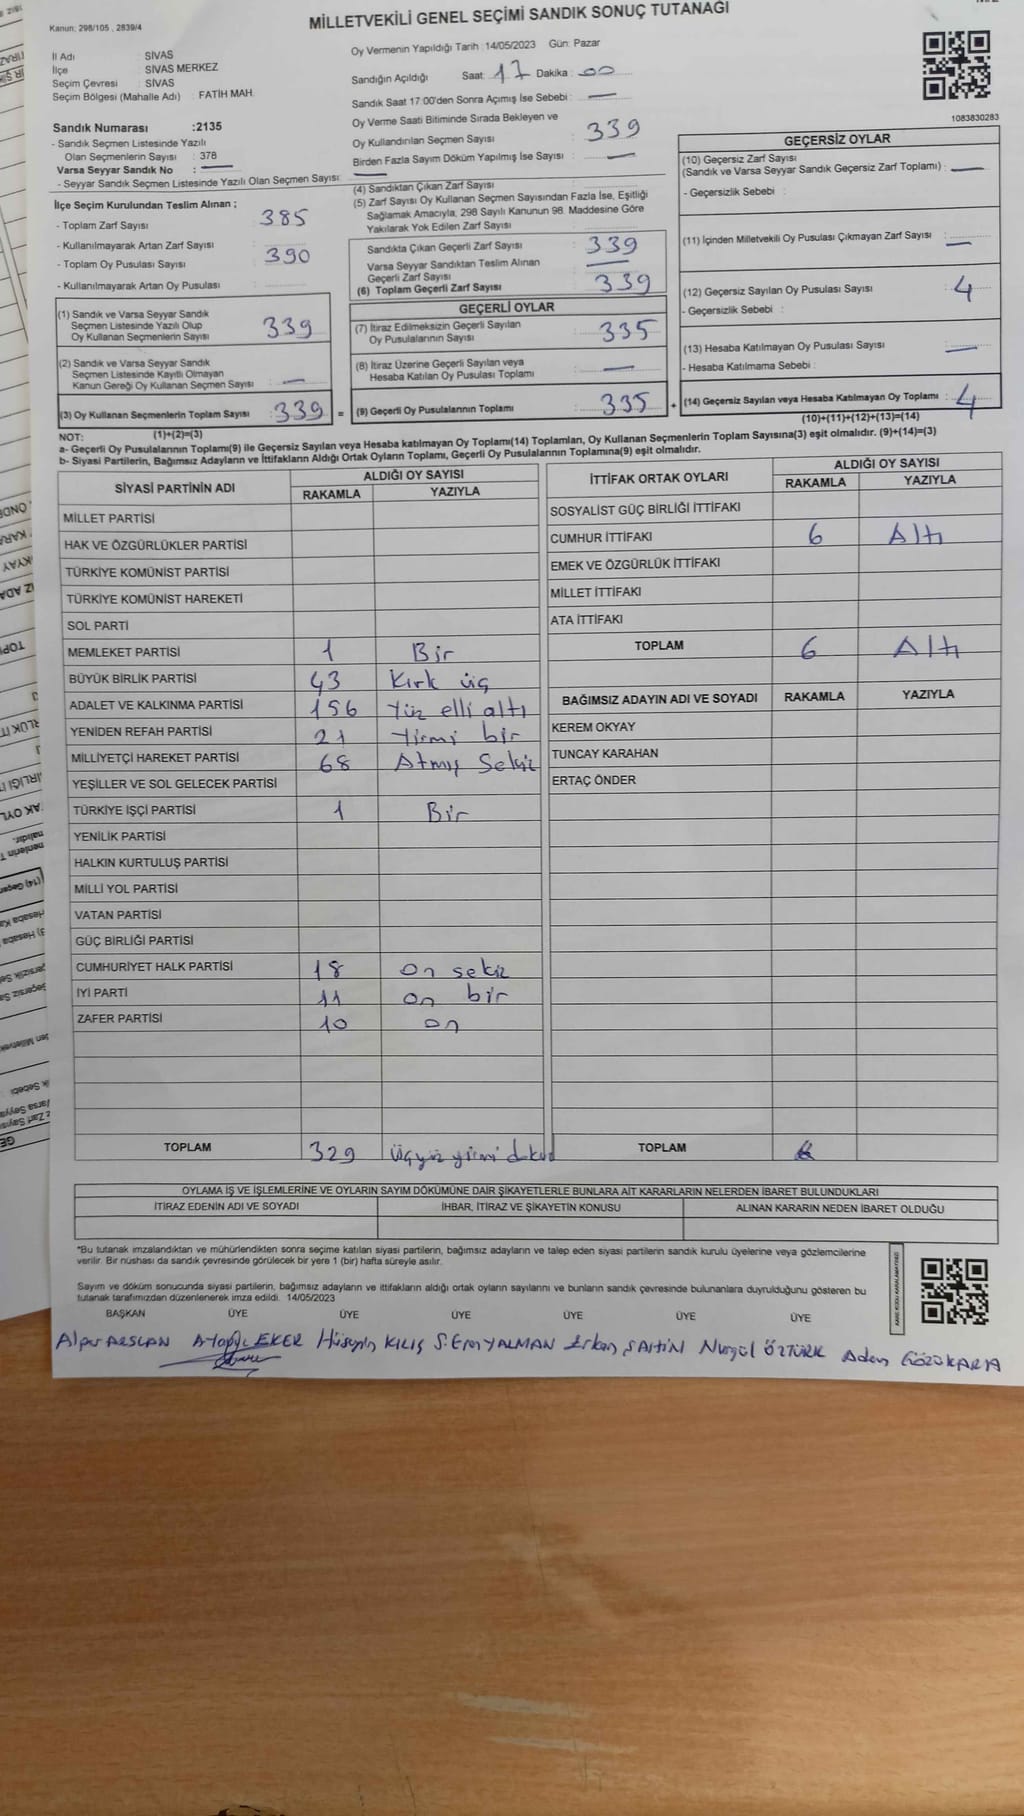 MİLLETVEKİLİ GENEL SEÇİMİ SANDIK SONUÇ TUTANAĞI
Kanun: 298/105 , 2839/4
İl Adı : SİVAS
İlçe : SİVAS MERKEZ
Seçim Çevresi : SİVAS
Seçim Bölgesi (Mahalle Adı) : FATİH MAH.
Sandık Numarası :2135
- Sandık Seçmen Listesinde Yazılı
Olan Seçmenlerin Sayısı : 378
Varsa Seyyar Sandık No : —
- Seyyar Sandık Seçmen Listesinde Yazılı Olan Seçmen Sayısı: —
Oy Vermenin Yapıldığı Tarih : 14/05/2023 Gün: Pazar
Sandığın Açıldığı Saat: 17 Dakika : 00
Sandık Saat 17:00'den Sonra Açımış İse Sebebi : —
Oy Verme Saati Bitiminde Sırada Bekleyen ve
Oy Kullandırılan Seçmen Sayısı : 339
Birden Fazla Sayım Döküm Yapılmış İse Sayısı : —
(4) Sandıktan Çıkan Zarf Sayısı
(5) Zarf Sayısı Oy Kullanan Seçmen Sayısından Fazla İse, Eşitliği
Sağlamak Amacıyla, 298 Sayılı Kanunun 98. Maddesine Göre
Yakılarak Yok Edilen Zarf Sayısı :
1083830283
İlçe Seçim Kurulundan Teslim Alınan ;
- Toplam Zarf Sayısı : 385
- Kullanılmayarak Artan Zarf Sayısı
- Toplam Oy Pusulası Sayısı : 390
- Kullanılmayarak Artan Oy Pusulası :
(1) Sandık ve Varsa Seyyar Sandık
Seçmen Listesinde Yazılı Olup
Oy Kullanan Seçmenlerin Sayısı 339
(2) Sandık ve Varsa Seyyar Sandık
Seçmen Listesinde Kayıtlı Olmayan
Kanun Gereği Oy Kullanan Seçmen Sayısı : —
(3) Oy Kullanan Seçmenlerin Toplam Sayısı : 339 =
Sandıkta Çıkan Geçerli Zarf Sayısı : 339
Varsa Seyyar Sandıktan Teslim Alınan
Geçerli Zarf Sayısı : —
(6) Toplam Geçerli Zarf Sayısı : 339
GEÇERLİ OYLAR
(7) İtiraz Edilmeksizin Geçerli Sayılan
Oy Pusulalarının Sayısı : 335
(8) İtiraz Üzerine Geçerli Sayılan veya
Hesaba Katılan Oy Pusulası Toplamı : —
(9) Geçerli Oy Pusulalarının Toplamı : 335 +
GEÇERSİZ OYLAR
(10) Geçersiz Zarf Sayısı
(Sandık ve Varsa Seyyar Sandık Geçersiz Zarf Toplamı) : —
- Geçersizlik Sebebi :
(11) İçinden Milletvekili Oy Pusulası Çıkmayan Zarf Sayısı : —
(12) Geçersiz Sayılan Oy Pusulası Sayısı : 4
- Geçersizlik Sebebi :
(13) Hesaba Katılmayan Oy Pusulası Sayısı : —
- Hesaba Katılmama Sebebi :
(14) Geçersiz Sayılan veya Hesaba Katılmayan Oy Toplamı : 4
(10)+(11)+(12)+(13)=(14)
NOT: (1)+(2)=(3)
a- Geçerli Oy Pusulalarının Toplamı(9) ile Geçersiz Sayılan veya Hesaba katılmayan Oy Toplamı(14) Toplamları, Oy Kullanan Seçmenlerin Toplam Sayısına(3) eşit olmalıdır. (9)+(14)=(3)
b- Siyasi Partilerin, Bağımsız Adayların ve İttifakların Aldığı Ortak Oyların Toplamı, Geçerli Oy Pusulalarının Toplamına(9) eşit olmalıdır.
SİYASİ PARTİNİN ADI ALDIĞI OY SAYISI
RAKAMLA YAZIYLA
MİLLET PARTİSİ
HAK VE ÖZGÜRLÜKLER PARTİSİ
TÜRKİYE KOMÜNİST PARTİSİ
TÜRKİYE KOMÜNİST HAREKETİ
SOL PARTİ
MEMLEKET PARTİSİ 1 Bir
BÜYÜK BİRLİK PARTİSİ 43 Kırk üç
ADALET VE KALKINMA PARTİSİ 156 Yüz elli altı
YENİDEN REFAH PARTİSİ 21 Yirmi bir
MİLLİYETÇİ HAREKET PARTİSİ 68 Atmış Sekiz
YEŞİLLER VE SOL GELECEK PARTİSİ
TÜRKİYE İŞÇİ PARTİSİ 1 Bir
YENİLİK PARTİSİ
HALKIN KURTULUŞ PARTİSİ
MİLLİ YOL PARTİSİ
VATAN PARTİSİ
GÜÇ BİRLİĞİ PARTİSİ
CUMHURİYET HALK PARTİSİ 18 on sekiz
İYİ PARTİ 11 on bir
ZAFER PARTİSİ 10 on
TOPLAM 329 Üçyüz yirmi dokuz
İTTİFAK ORTAK OYLARI ALDIĞI OY SAYISI
RAKAMLA YAZIYLA
SOSYALİST GÜÇ BİRLİĞİ İTTİFAKI
CUMHUR İTTİFAKI 6 Altı
EMEK VE ÖZGÜRLÜK İTTİFAKI
MİLLET İTTİFAKI
ATA İTTİFAKI
TOPLAM 6 Altı
BAĞIMSIZ ADAYIN ADI VE SOYADI RAKAMLA YAZIYLA
KEREM OKYAY
TUNCAY KARAHAN
ERTAÇ ÖNDER
TOPLAM
OYLAMA İŞ VE İŞLEMLERİNE VE OYLARIN SAYIM DÖKÜMÜNE DAİR ŞİKAYETLERLE BUNLARA AİT KARARLARIN NELERDEN İBARET BULUNDUKLARI
İTİRAZ EDENİN ADI VE SOYADI İHBAR, İTİRAZ VE ŞİKAYETİN KONUSU ALINAN KARARIN NEDEN İBARET OLDUĞU
*Bu tutanak imzalandıktan ve mühürlendikten sonra seçime katılan siyasi partilerin, bağımsız adayların ve talep eden siyasi partilerin sandık kurulu üyelerine veya gözlemcilerine
verilir. Bir nüshası da sandık çevresinde görülecek bir yere 1 (bir) hafta süreyle asılır.
Sayım ve döküm sonucunda siyasi partilerin, bağımsız adayların ve ittifakların aldığı ortak oyların sayılarını ve bunların sandık çevresinde bulunanlara duyrulduğunu gösteren bu
tutanak tarafımızdan düzenlenerek imza edildi. 14/05/2023
BAŞKAN ÜYE ÜYE ÜYE ÜYE ÜYE ÜYE
Alper ARSLAN EKER Hüseyin KILIÇ S. Eren YALMAN Erkan ŞAHİN Nurgül ÖZTÜRK Adem GÖZÜKARA